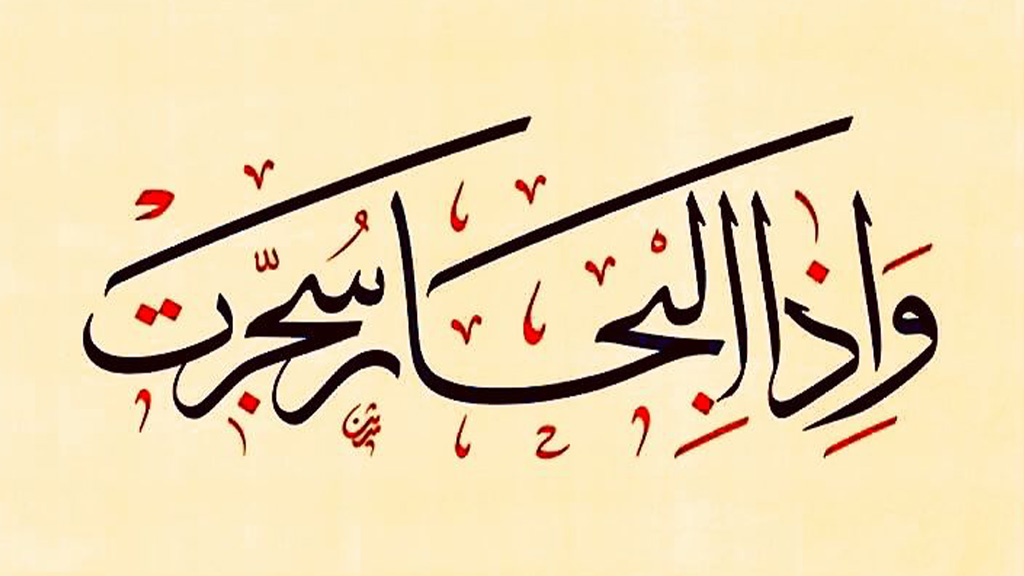 وَاِذَا الْبِحَارُ سُجِّرَت